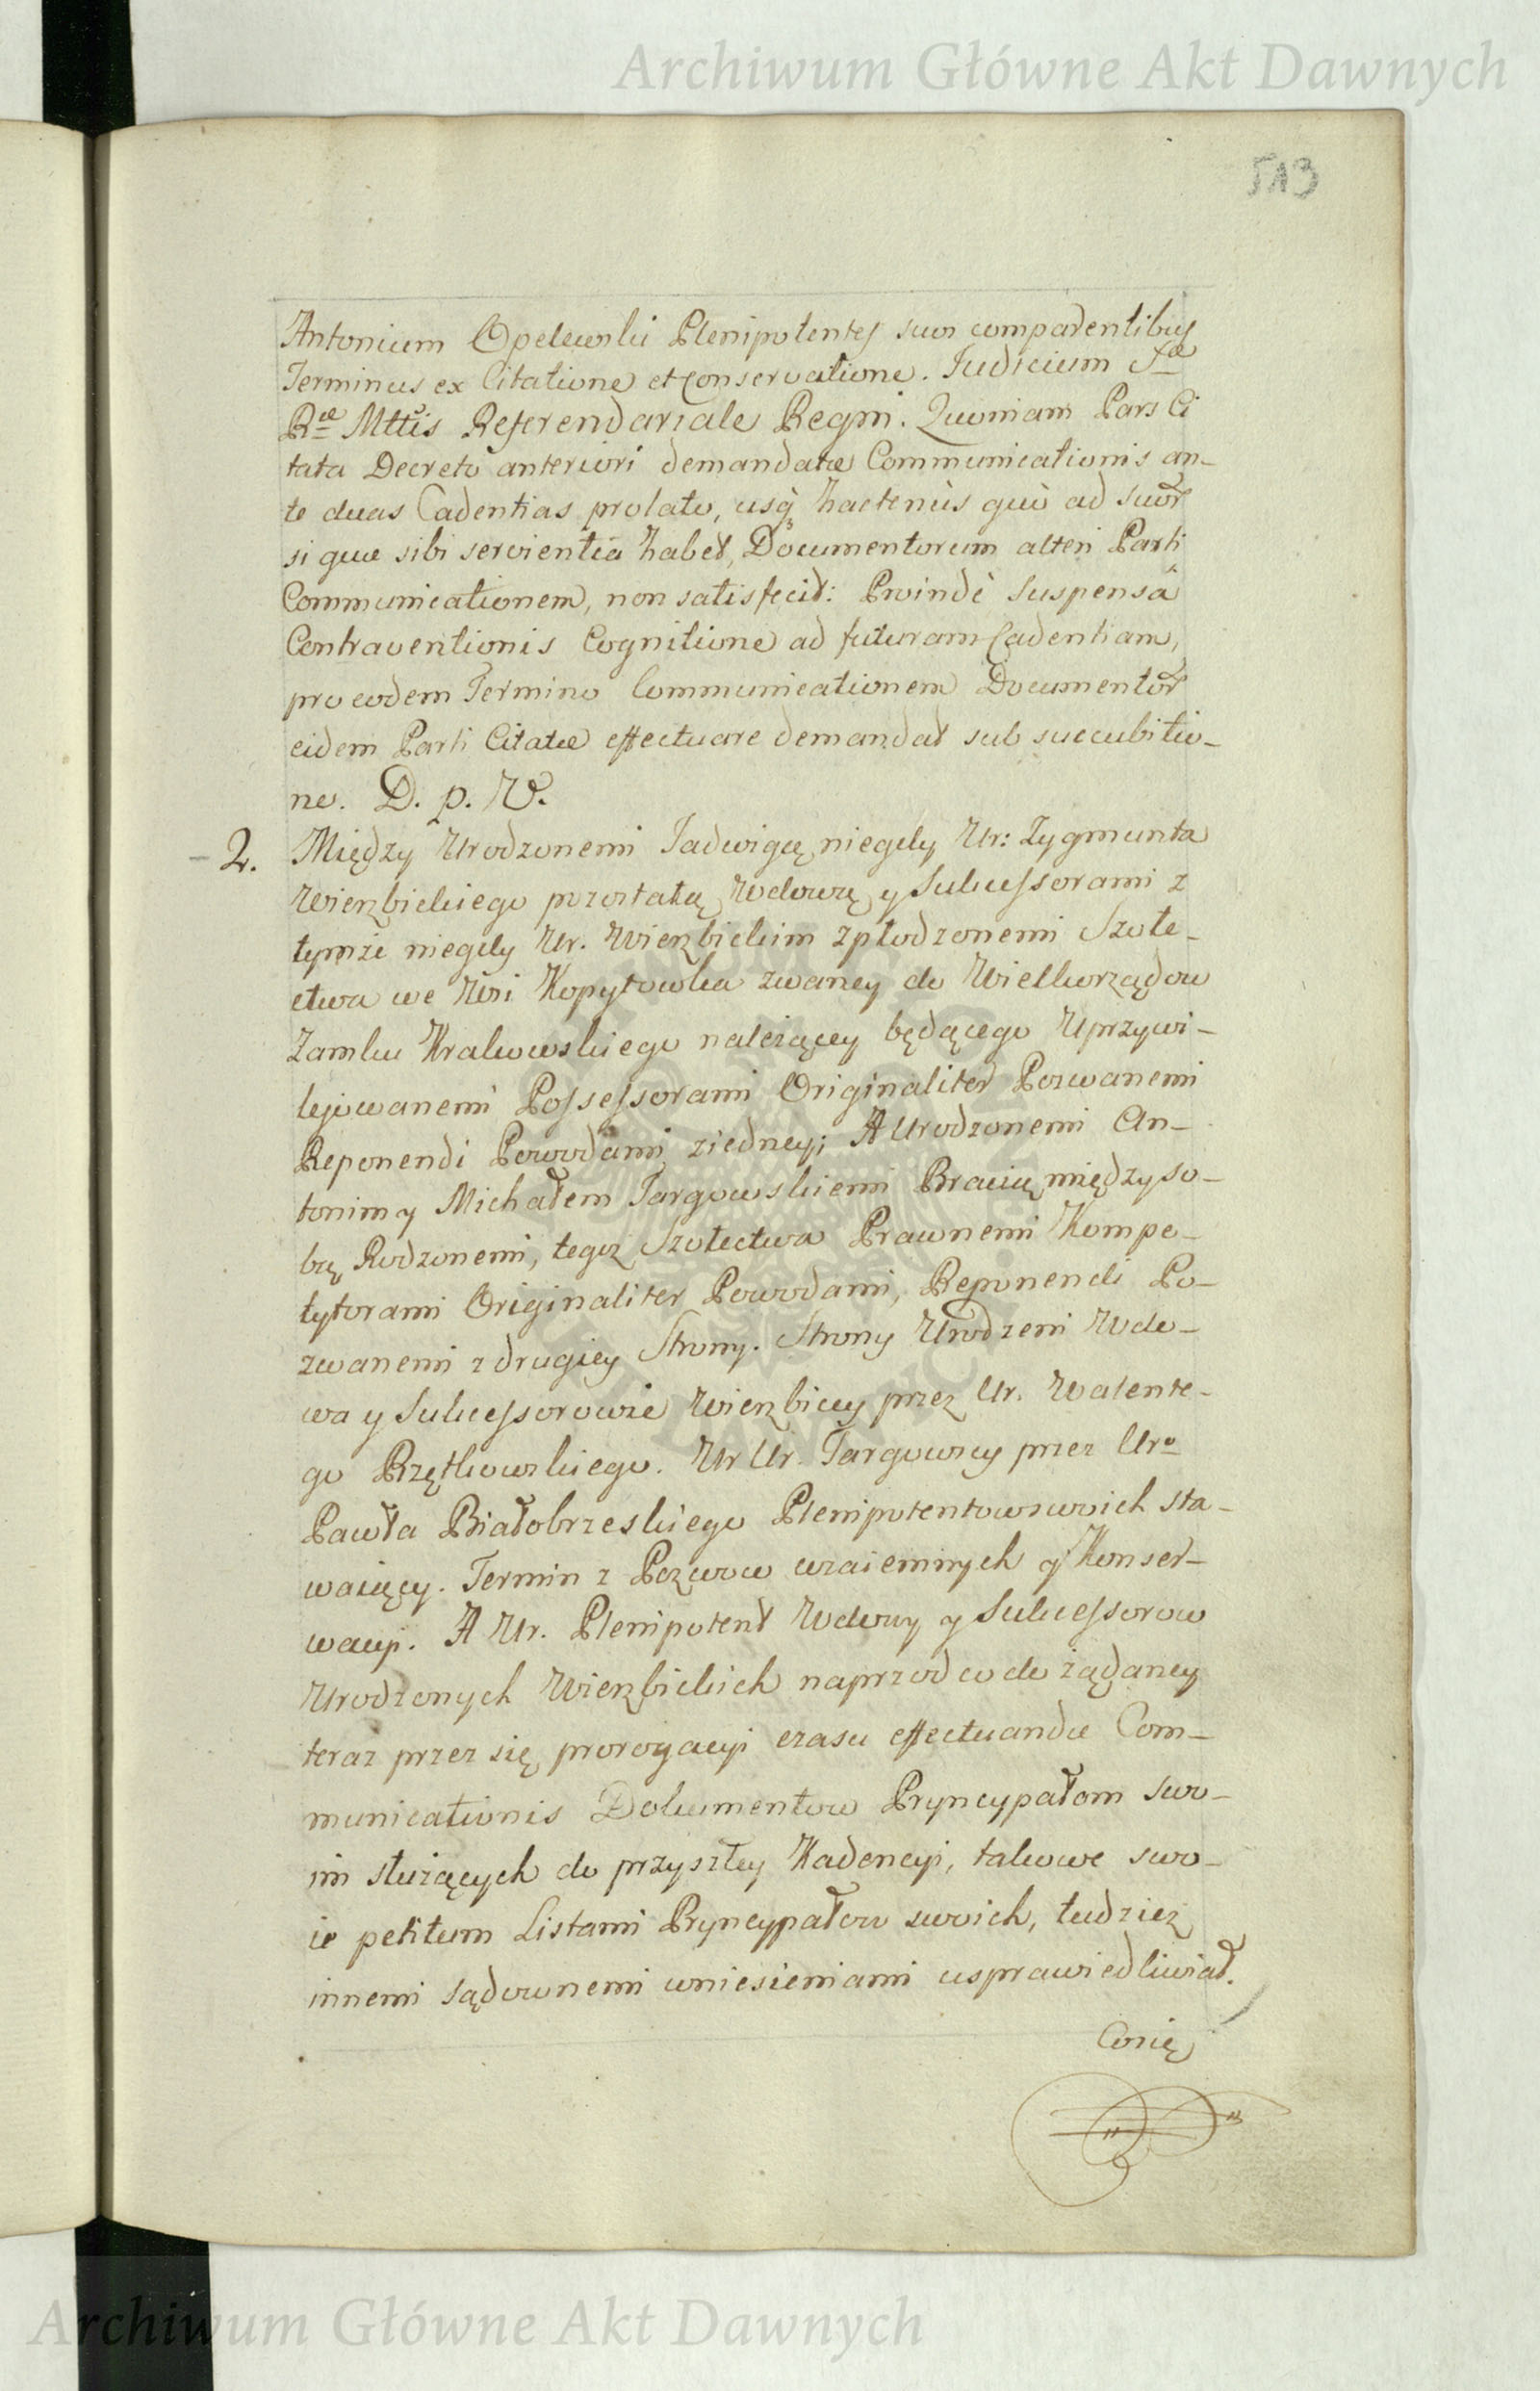 Archiwum Główne Akt Dawnych
513
Antonium Opelewski Plenipotentes suos comparentibus
Terminus ex Citatione et Conservatione. Judicium Sæ
Ræ Mttis Referendariale Regni. Quoniam Pars Ci
tata Decreto anteriori demandatæ Communicationis an-
te duas Cadentias prolato, usq hactenùs quò ad suor
si quæ sibi servientia habet, Documentorum alteri Parti
Communicationem, non satisfecit: Proindè suspensâ
Contraventionis Cognitione ad futuram Cadentiam,
pro eodem Termino Communicationem Documentor
eidem Parti Citatæ effectuare demandat sub succubitio-
ne. D. p. W.
2. Między Urodzonemi Jadwigą niegdy Ur: Zygmunta
Wierzbickiego pozostałą Wdową y Sukcessorami z
tymże niegdy Ur. Wierzbickim zpłodzonemi Szołe-
ctwa we Wsi Kopytowka zwaney do Wielkorządow
Zamku Krakowskiego należącey będącego Uprzywi-
lejowanemi Possessorami Originaliter Pozwanemi
Reponendi Powodami z iedney; A Urodzonemi An-
tonim y Michałem Targowskiemi Bracią między so-
bą Rodzonemi, tegoż Szołectwa Prawnemi Kompe-
tytorami Originaliter Powodami, Reponendi Po-
zwanemi z drugiey Strony. Strony Urodzeni Wdo-
wa y Sukcessorowie Wierzbiccy przez Ur. Walente-
go Rzętkowskiego. Ur Ur. Targowscy przez Uro
Pawła Białobrzeskiego Plenipotentow swoich sta-
waiący. Termin z Pozwow wzaiemnych y Konser-
wacyi. A Ur. Plenipotent Wdowy y Sukcessorow
Urodzonych Wierzbickich naprzod co do żądaney
teraz przez się prorogacyi czasu effectuandæ Com-
municationis Dokumentow Pryncypałom swo-
im służących do przyszłey Kadencyi, takowe swo-
ie petitum Listami Pryncypałow swoich, tudzież
innemi sądownemi wniesieniami usprawiedliwiał.
Co się
Archiwum Główne Akt Dawnych